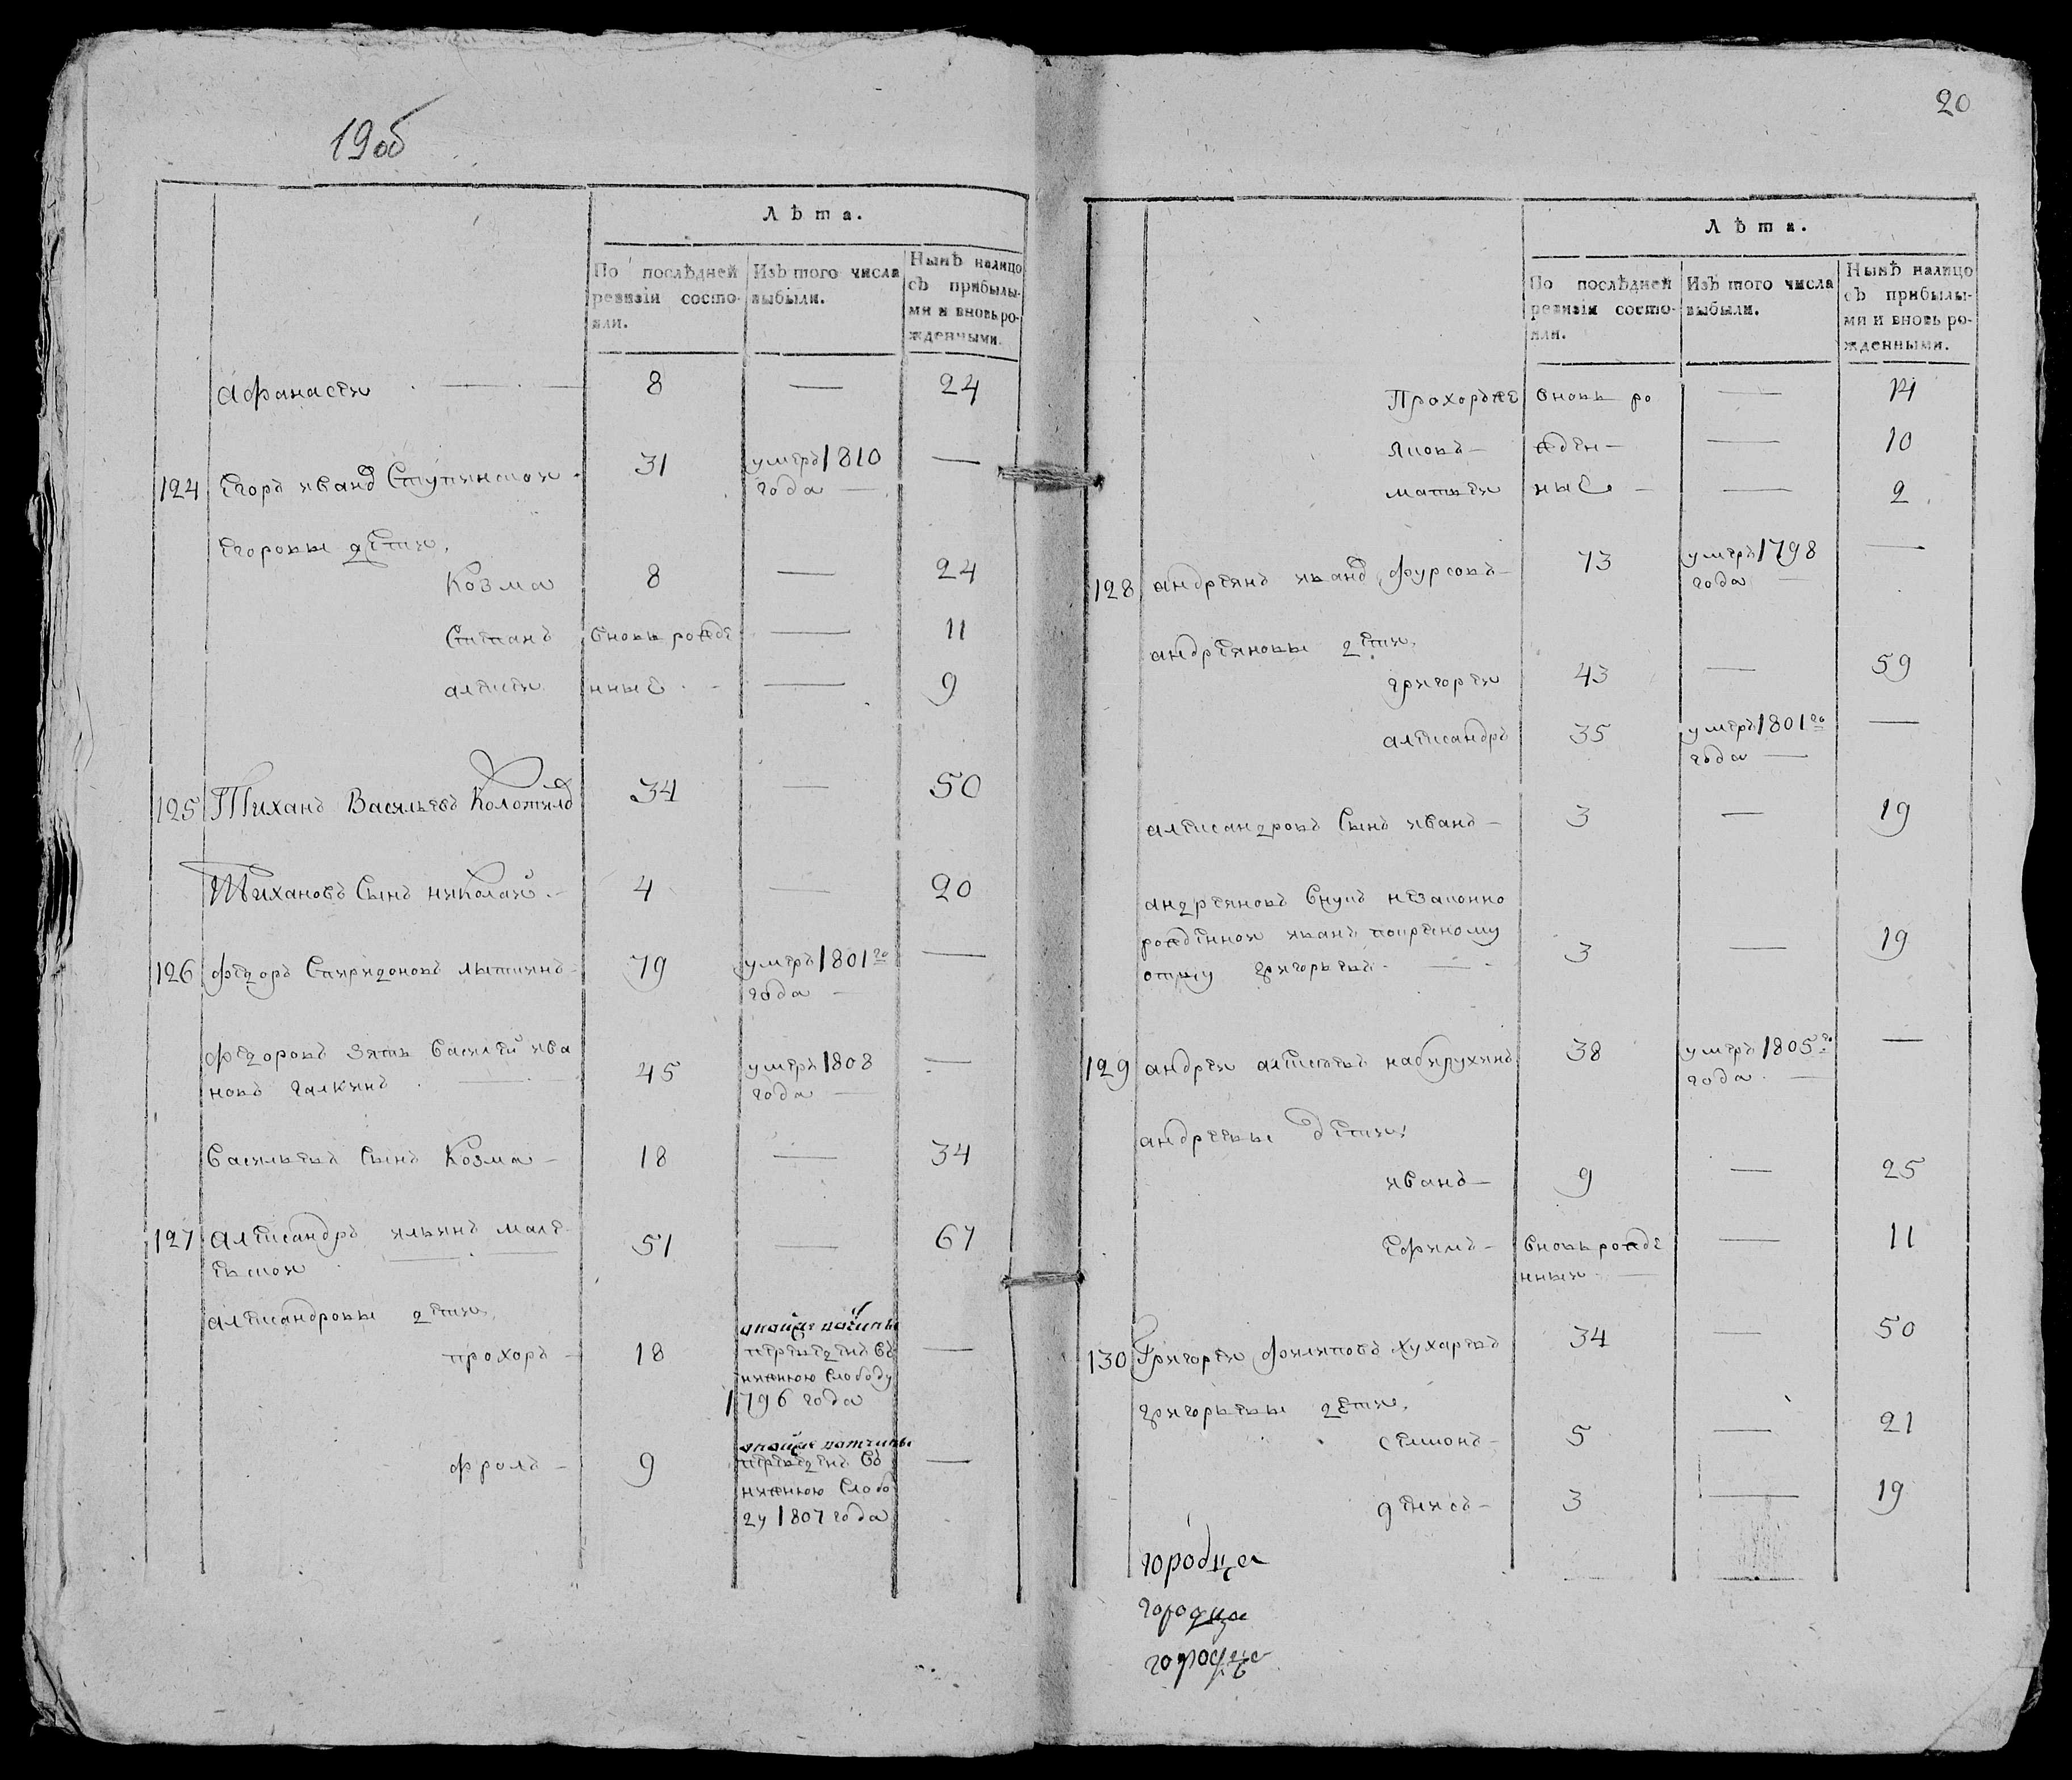 19об
Лѣта.
По послѣдней ревизіи состо-
яли.
Изъ того числа
выбыли.
Нынѣ налицо
съ прибылы-
ми и вновь ро-
жденными.
Афанасеи — 8 — 24
124 Егоръ Иванъ 31 умеръ 1810 —
года
Егоровы дети
Козма 8 — 24
Степанъ вновь рожде — 11
Алексеи нные — 9
125 Тиханъ Васильевъ 34 — 50
Тихановъ Сынъ Николай 4 — 20
126 Федоръ Спиридоновъ 79 умеръ 1801го —
года
Федоровъ зять Василеи Ива
новъ Галкинъ 45 умеръ 1808 —
года
Васильевъ Сынъ Козма 18 — 34
127 Александръ Ильинъ 51 — 67
Александровы дети
Прохоръ 18 —
переведенъ въ
нижнюю Слободу
1796 года
Фролъ 9 —
переведенъ въ
нижнюю Слобо
ду 1807 года
20
Лѣта.
По послѣдней
ревизіи состо-
яли.
Изъ того числа
выбыли.
Нынѣ налицо
съ прибылы-
ми и вновь ро-
жденными.
вновь ро — 14
Яковъ жден — 10
Матвеи ные — 2
128 Андреянъ Иванъ Фурсовъ 73 умеръ 1798 —
года
Андреяновы дети
Григореи 43 — 59
Александръ 35 умеръ 1801го —
года
Александровъ Сынъ Иванъ 3 — 19
Андреяновъ внукъ незаконно
рожденнои Иванъ покресному
отцу Григорьевъ 3 — 19
129 Андреи Алексеевъ 38 умеръ 1805го —
года
Андреевы дети
Иванъ 9 — 25
Ефимъ вновь рожде — 11
нныи
130 Григореи Филиповъ Кухаревъ 34 — 50
Григорьевы дети
Семионъ 5 — 21
Денисъ 3 — 19
городца
городца